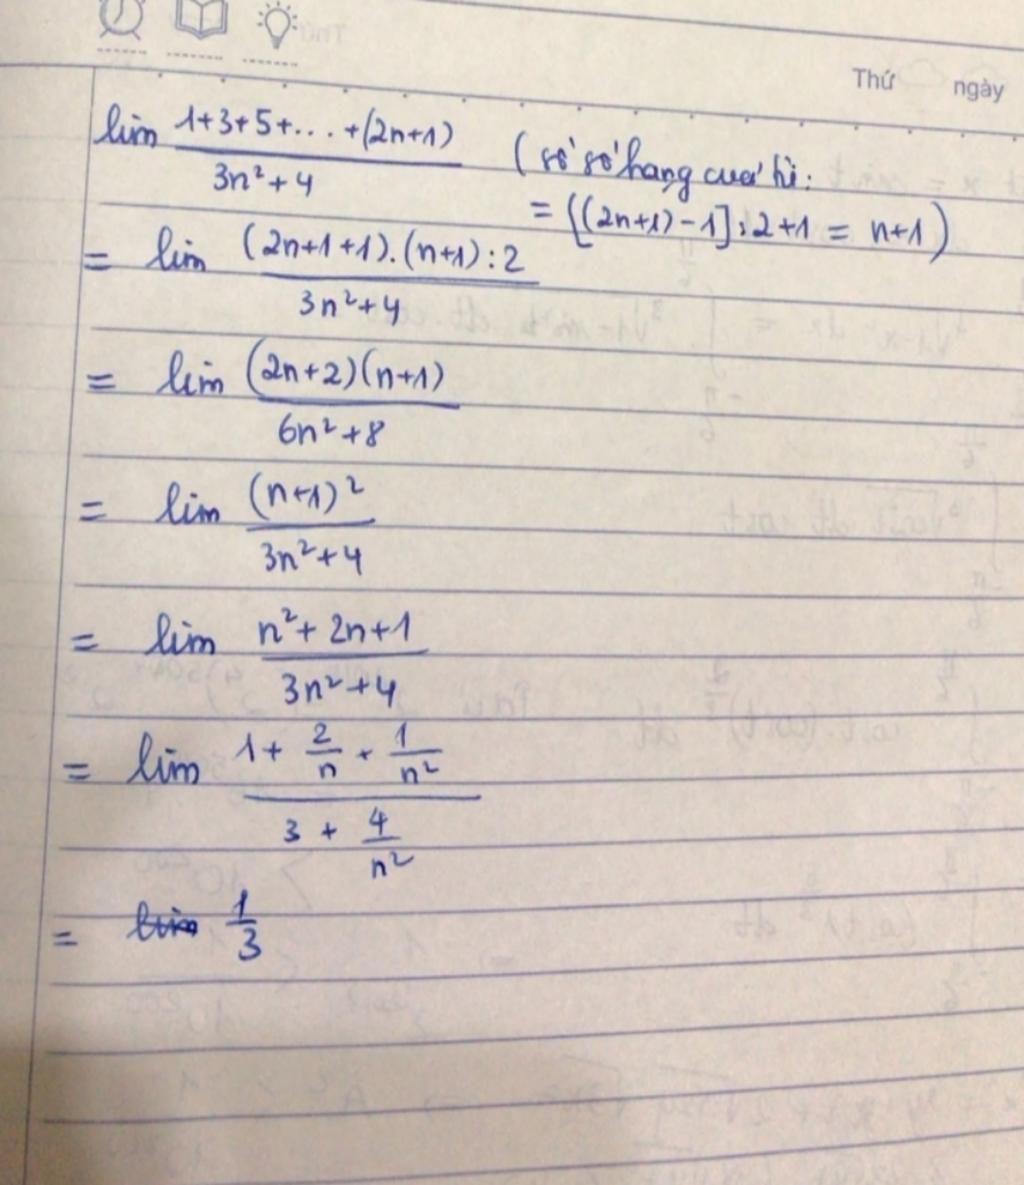 Thứ ngày
lim (1+3+5+...+(2n+1))/(3n²+4) (số số hạng của tử:
= [(2n+1)-1]:2+1 = n+1)
= lim ((2n+1+1).(n+1):2)/(3n²+4)
= lim ((2n+2)(n+1))/(6n²+8)
= lim (n+1)²/(3n²+4)
= lim (n²+2n+1)/(3n²+4)
= lim (1+2/n+1/n²)/(3+4/n²)
= 1/3